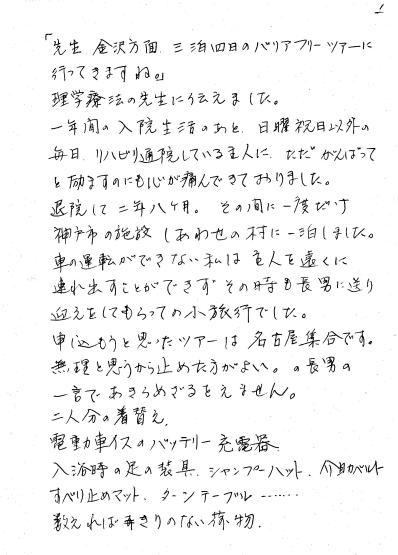 1
「先生 金沢方面、三泊四日のバリアフリーツアーに
行ってきますね。」
理学療法の先生に伝えました。
一年間の入院生活のあと、日曜祝日以外の
毎日、リハビリ通院している主人に、ただ がんばって
と励ますのにも心が痛んできておりました。
退院して二年八ヶ月。その間に一度だけ
神戸市の施設 しあわせの村に一泊しました。
車の運転ができない私は 主人を遠くに
連れ出すことができず その時も長男に送り
迎えをしてもらっての小旅行でした。
申込もうと思ったツアーは 名古屋集合です。
無理と思うから止めた方がよい。の長男の
一言で あきらめざるをえません。
二人分の着替え、
電動車イスのバッテリー充電器、
入浴時の足の装具、シャンプーハット、介助ベルト
すべり止めマット、ターンテーブル……
数えればきりのない荷物、